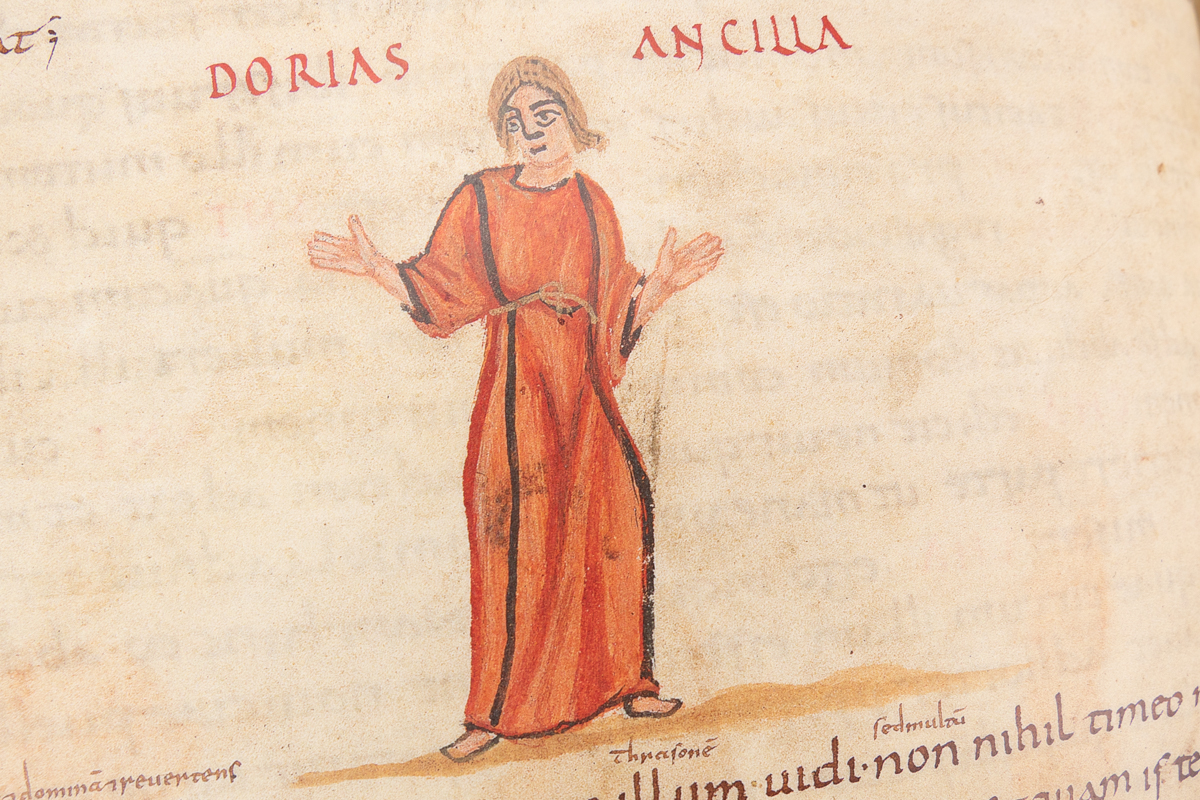 DORIAS ANCILLA
sedmultū
thrasonē
dominā revertens
illum uidi·non nihil timeo
quam if te